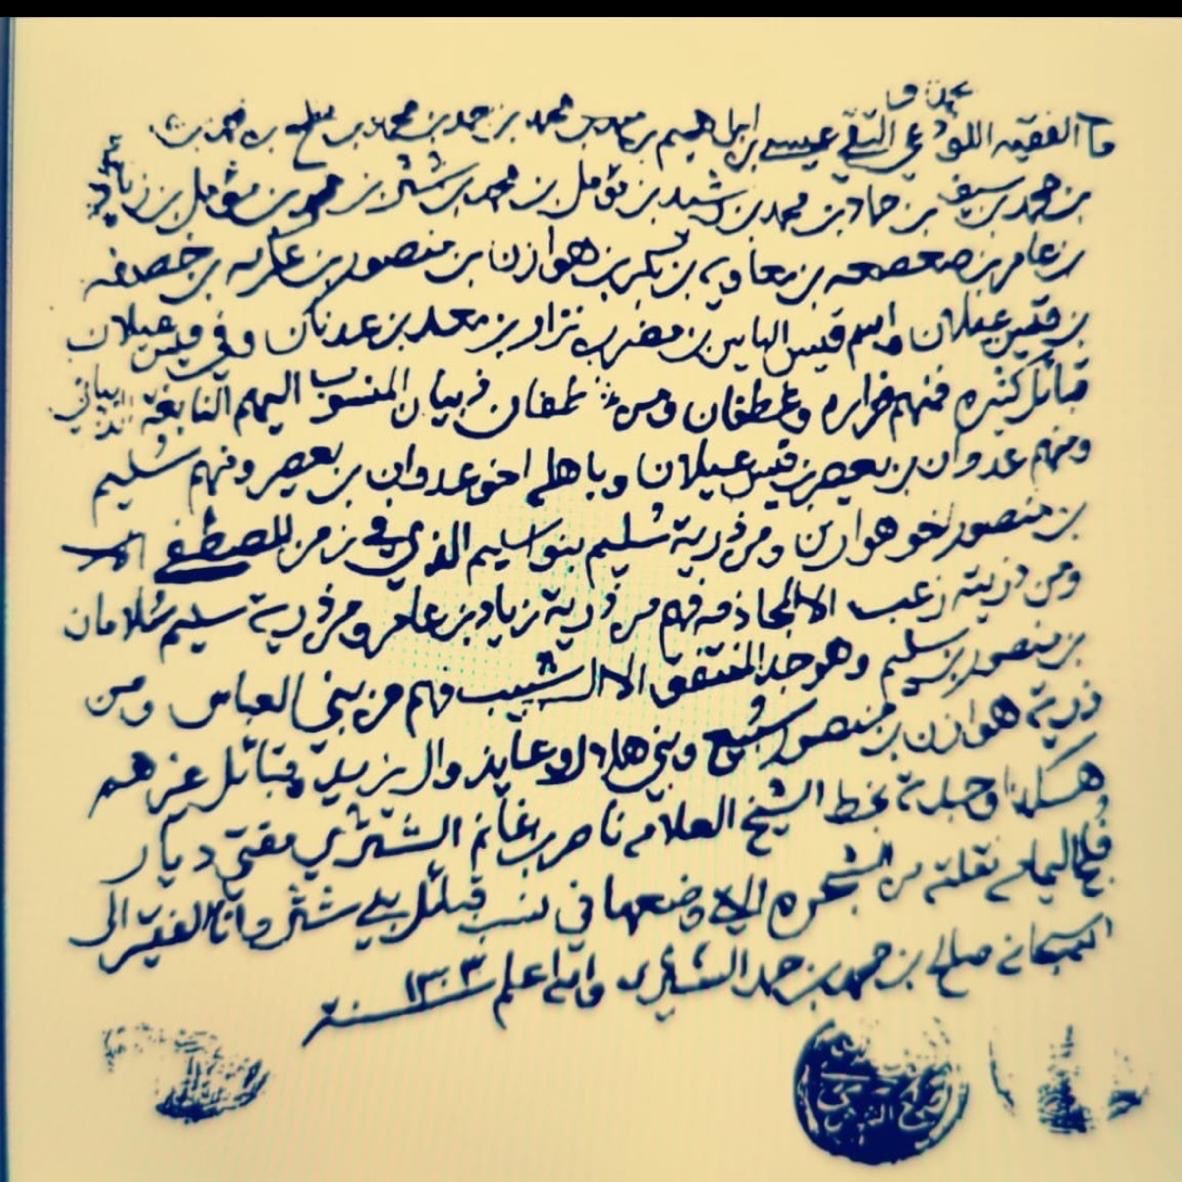 الفقيه اللوذعي التقي عيسى بن ابراهيم بن محمد بن محمد بن حمد بن محمد بن مفلح بن محمد بن
بن محمد بن سيف بن حماد بن محمد بن رشيد بن مؤمل بن محمد بن شثر بن بن مؤمل بن زياد
بن عامر بن صعصعه بن معاويه بن بكر بن هوازن بن منصور بن عكرمه بن خصفه
بن قيس عيلان واسم قيس الياس بن مضر بن نزار بن معد بن عدنان وفي قيس عيلان
قبائل كثيره فمنهم فزاره وغطفان ومن غطفان ذبيان المنسوب اليهم النابغة الذبياني
ومنهم عدوان بن يعصر بن قيس عيلان وباهله اخو عدوان بن يعصر ومنهم سُليم
بن منصور اخو هوازن ومن ذرية سُليم بنو سليم الذي في زمن المصطفى
ومن ذريته زعب الا المجاذمه فهم من ذرية زياد بن عامر ومن ذرية سليم سُلامان
بن منصور بن سليم وهو جد المنتفق الا الشبيب فهم من بني العباس ومن
ذرية هوازن بن منصور سُبيع وبني هلال وعايذ وال يزيد وقبائل غيرهم
هكذا وجدته بخط الشيخ العلامه ناصر بن غانم الشثري مفتي ديار
فلج اليمامه نقلته من الشجره التي وضعها في نسب قبائل بني شثر وانا الفقير الى
السبحاني صالح بن حمد بن حمد الشثري والله اعلم سنة ١٣٠٣